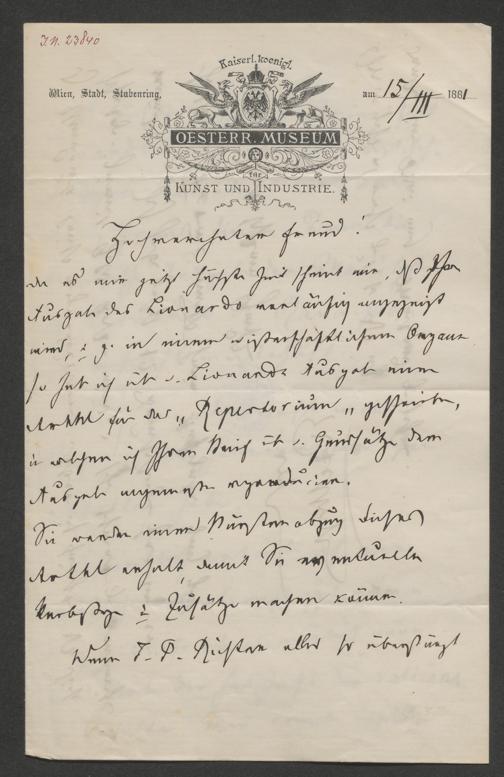 J.N. 23840
Kaiserl. koenigl.
Wien, Stadt, Stubenring,
am 15/III 1881
OESTERR. MUSEUM
für
KUNST UND INDUSTRIE.
Hochverehrter Freund!
da es mir jetzt höchste Zeit scheint mir, daß Ihre
Ausgabe des Lionardo vorläufig angezeigt
wird, z. g. in einem wissenschaftlichen Organe
so hab ich üb. d. Lionardo Ausgabe einen
Artikel für das „Repertorium" geschrieben,
in welchem ich Ihren Brief üb. d. Grundsätze dem
Ausgabe reproduciere.
Sie werden einen Bürstenabzug dieses
Artikel erhalten, damit Sie eventuelle
Zusätze machen können.
Wenn J. P. Richter alles so